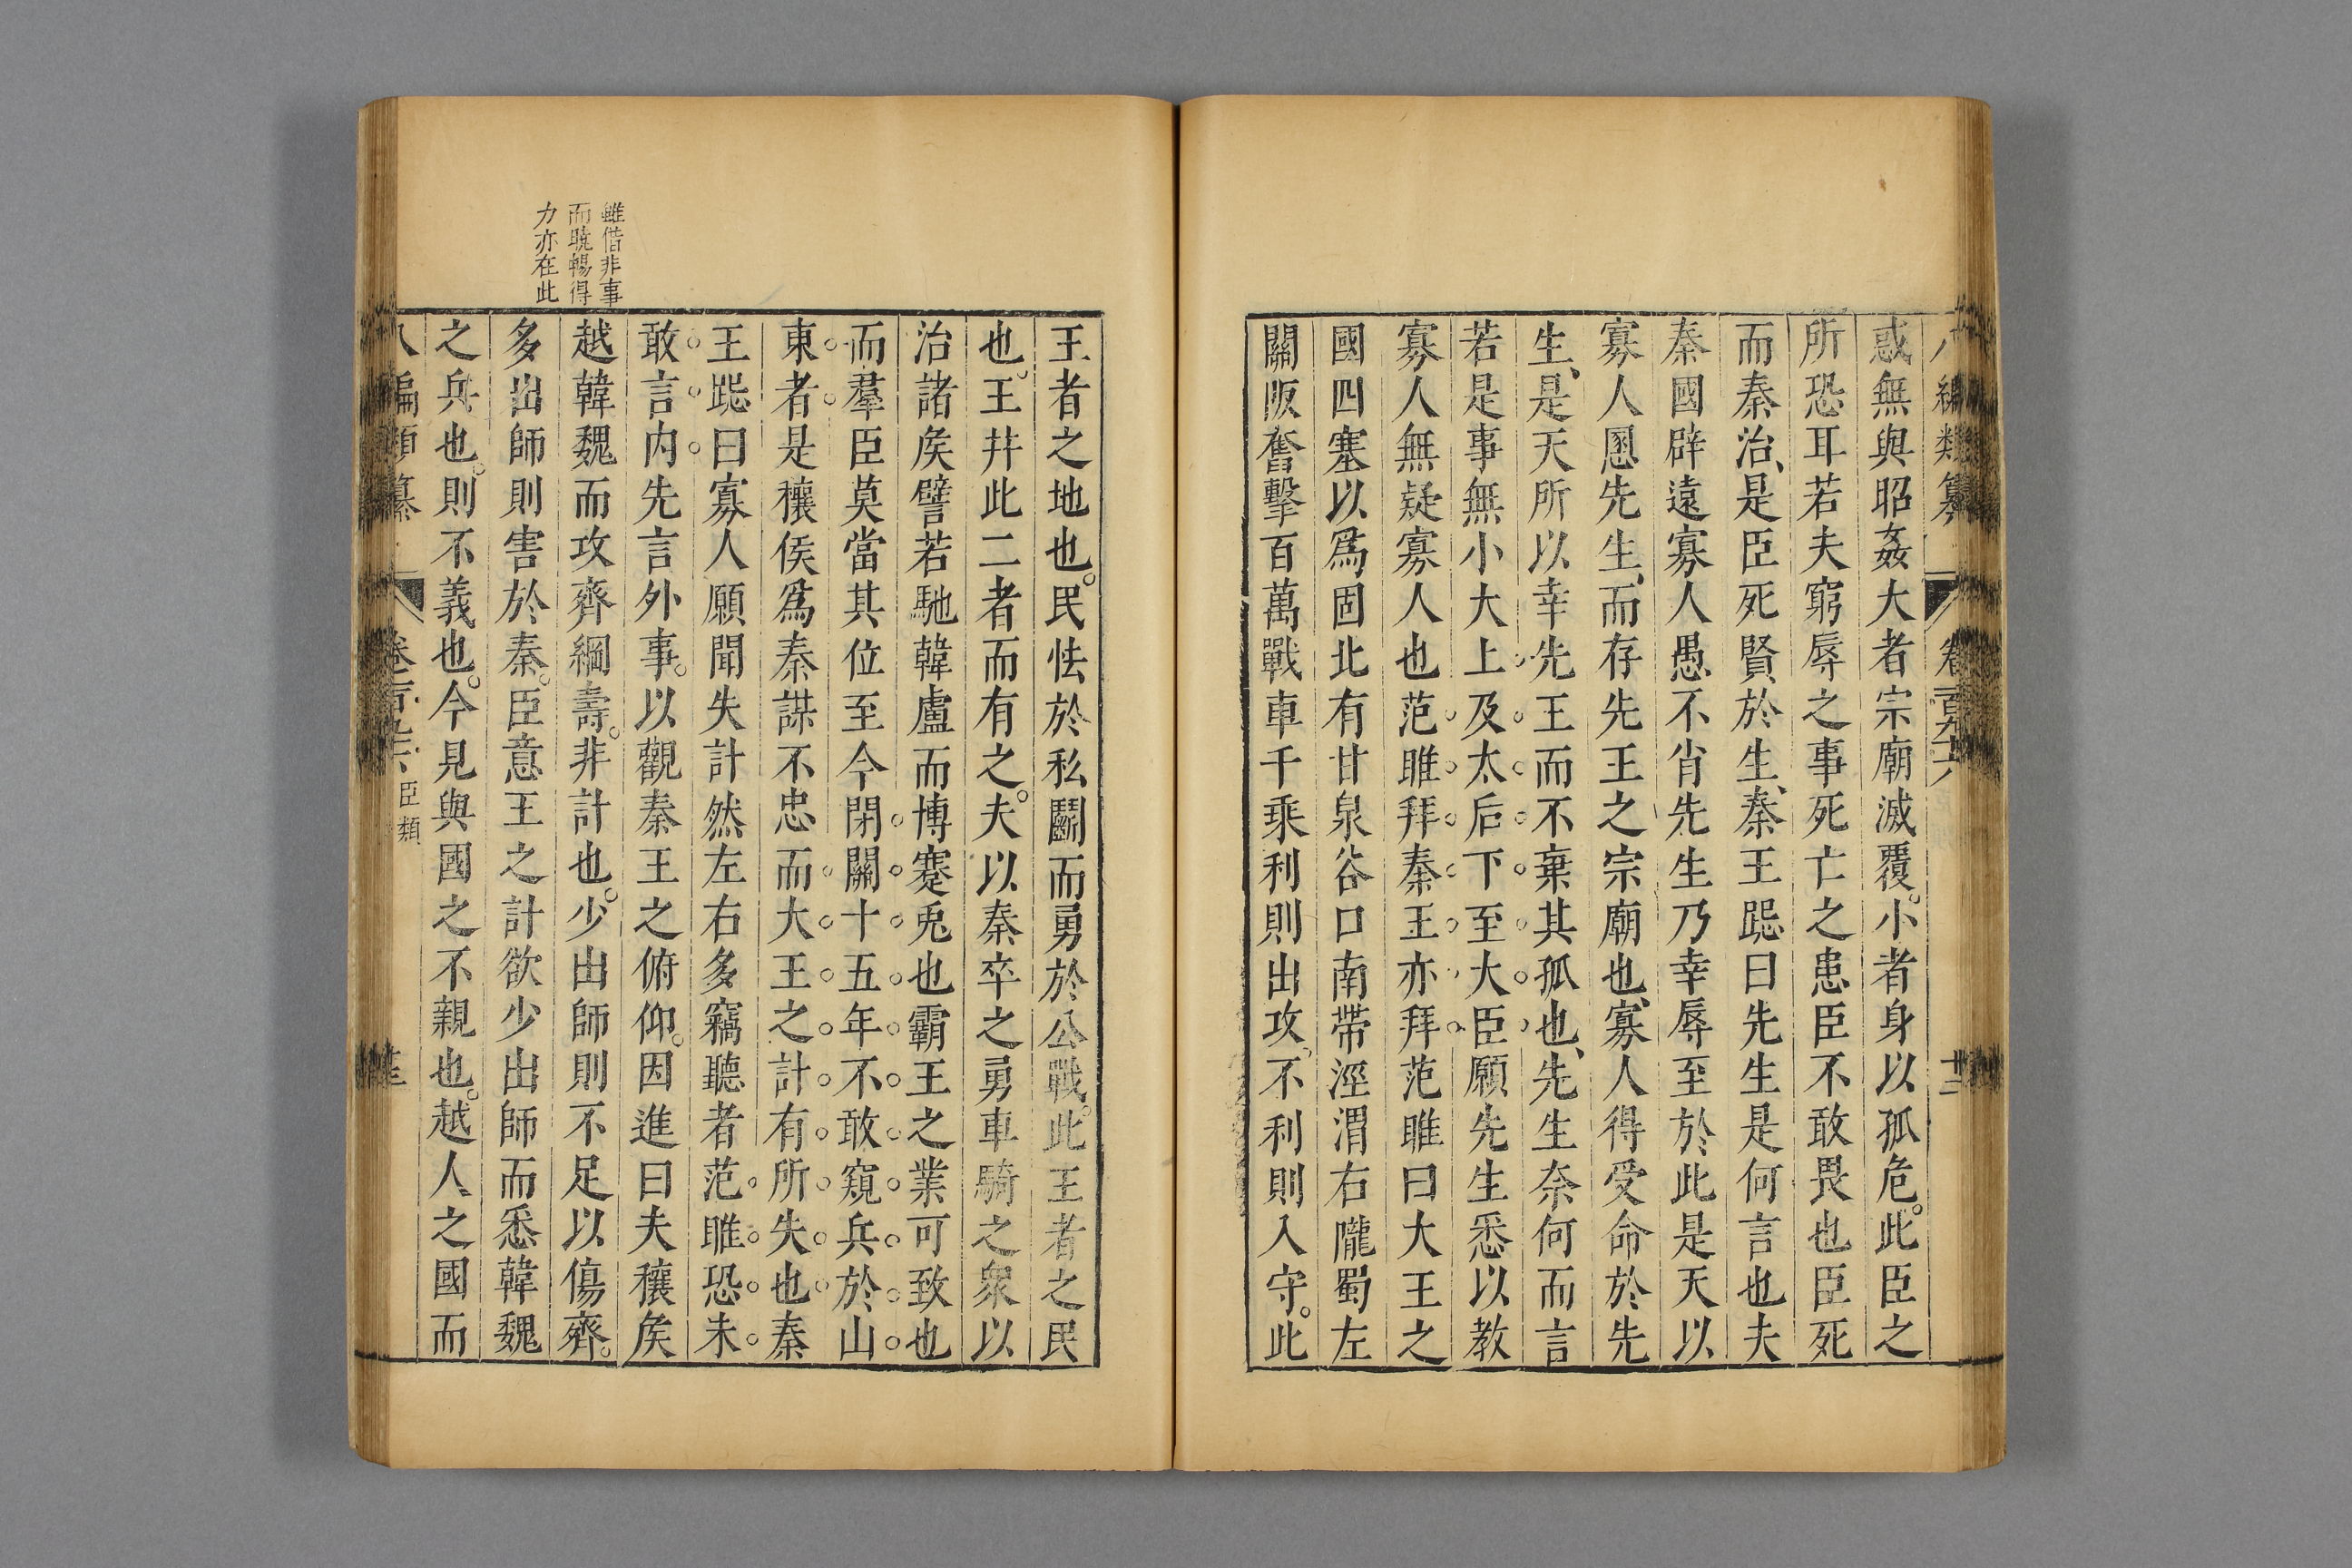 八編類纂 卷百六 十二
惑無與昭姦大者宗廟滅覆。小者身以孤危。此臣之
所恐耳若夫窮辱之事死亡之患臣不敢畏也臣死
而秦治、是臣死賢於生、秦王跽曰先生是何言也夫
秦國辟遠寡人愚不肖先生乃幸辱至於此是天以
寡人慁先生、而存先王之宗廟也、寡人得受命於先
生、是天所以幸先王而不棄其孤也、先生奈何而言
若是事無小大上及太后下至大臣願先生悉以教
寡人無疑寡人也范雎拜秦王亦拜范雎曰大王之
國四塞以爲固北有甘泉谷口南帶涇渭右隴蜀左
關阪奮擊百萬戰車千乘利則出攻、不利則入守。此
王者之地也。民怯於私鬭而勇於公戰。此王者之民
也。王并此二者而有之。夫以秦卒之勇車騎之衆以
治諸矦譬若馳韓盧而博蹇兎也霸王之業可致也
而羣臣莫當其位至今閉關十五年不敢窺兵於山
東者是穰侯爲秦謀不忠而大王之計有所失也秦
王跽曰寡人願聞失計然左右多竊聽者范雎恐未
敢言内先言外事。以觀秦王之俯仰。因進曰夫穰矦
越韓魏而攻齊綱壽。非計也。少出師則不足以傷齊。
多出師則害於秦。臣意王之計欲少出師而悉韓魏
之兵也。則不義也。今見與國之不親也。越人之國而
雖借非事
而聴暢得
力亦在此
八編類纂 卷百 臣類